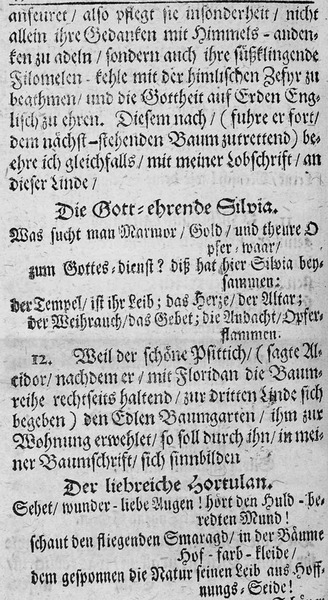 anfeuret / also pflegt sie insonderheit / nicht
allein ihre Gedanken mit Himmels-anden-
ken zu adeln / sondern auch ihre süßklingende
Filomelen-kehle mit der himlischen Zefyr zu
beathmen / und die Gottheit auf Erden Eng-
lisch zu ehren. Diesem nach / ( fuhre er fort /
dem nächst-stehenden Baum zutrettend ) be-
ehre ich gleichfalls / mit meiner Lobschrift / an
dieser Linde /
Die Gott-ehrende Silvia.
Was sucht man Marmor / Gold / und theure O
pfer-waar /
zum Gottes-dienst? diß hat hier Silvia bey-
sammen:
der Tempel / ist ihr Leib; das Herze / der Altar;
der Weihrauch / das Gebet; die Andacht / Opfer-
flammen.
12. Weil der schöne Psittich / ( sagte Al-
cidor / nachdem er / mit Floridan die Baum-
reihe rechtseits haltend / zur dritten Linde sich
begeben ) den Edlen Baumgarten / ihm zur
Wohnung erwehlet / so soll durch ihn / in mei-
ner Baumschrift / sich sinnbilden
Der liebreiche Hortulan.
Sehet / wunder-liebe Augen! hört den Huld-be-
redten Mund!
schaut den fliegenden Smaragd / in der Bäume
Hof-farb-kleide /
dem gesponnen die Natur seinen Leib aus Hoff-
nungs-Seide!